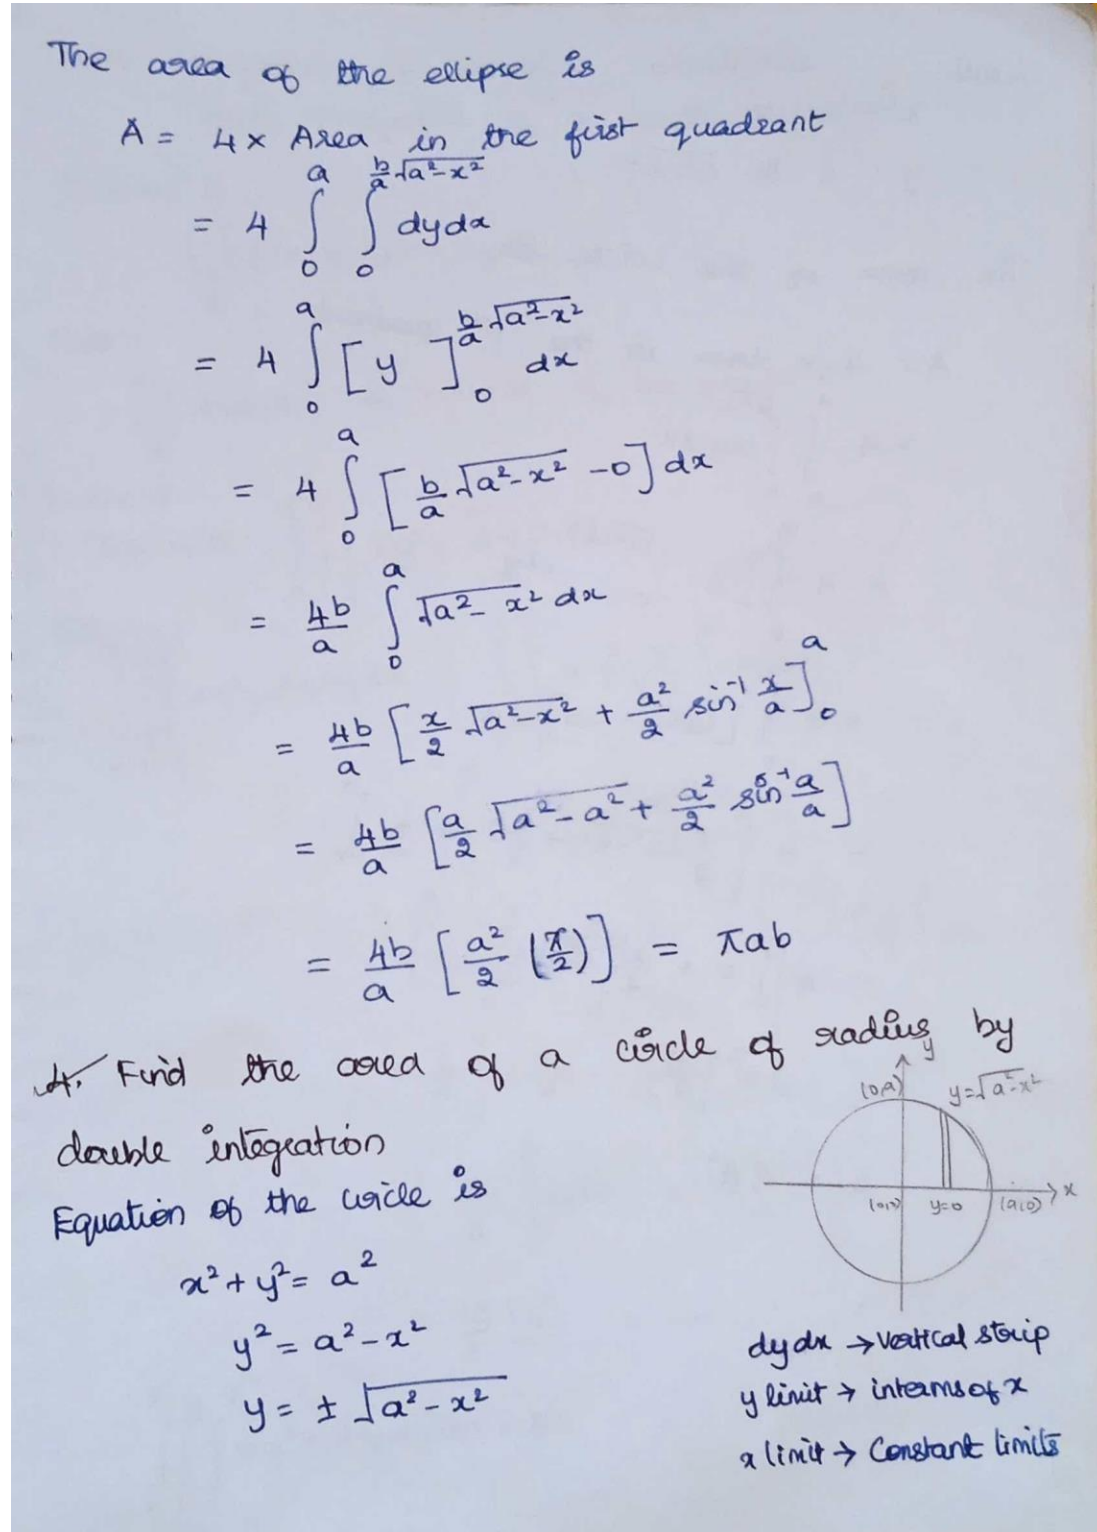 The area of the ellipse is
A = 4 × Area in the first quadrant
= 4 ∫₀^a ∫₀^{b/a √(a²-x²)} dy dx
= 4 ∫₀^a [y]₀^{b/a √(a²-x²)} dx
= 4 ∫₀^a [b/a √(a²-x²) - 0] dx
= 4b/a ∫₀^a √(a²-x²) dx
= 4b/a [x/2 √(a²-x²) + a²/2 sin⁻¹ x/a]₀^a
= 4b/a [a/2 √(a²-a²) + a²/2 sin⁻¹ a/a]
= 4b/a [a²/2 (π/2)] = πab
4. Find the area of a circle of radius by
double integration
Equation of the circle is
x² + y² = a²
y² = a² - x²
y = ± √(a²-x²)
y
(0,a)
y=√(a²-x²)
x
(0,0)
y=0
(a,0)
dy dx → vertical strip
y limit → interms of x
x limit → Constant limits